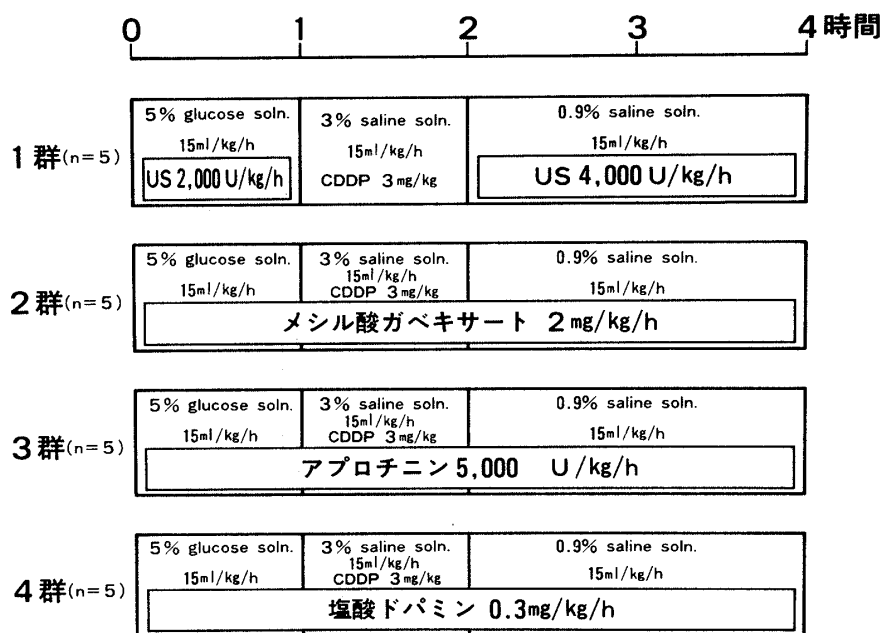 0 1 2 3 4 時間
1群(n=5)
5% glucose soln.
15ml/kg/h
US 2,000 U/kg/h
3% saline soln.
15ml/kg/h
CDDP 3mg/kg
0.9% saline soln.
15ml/kg/h
US 4,000 U/kg/h
2群(n=5)
5% glucose soln.
15ml/kg/h
3% saline soln.
15ml/kg/h
CDDP 3mg/kg
0.9% saline soln.
15ml/kg/h
メシル酸ガベキサート 2mg/kg/h
3群(n=5)
5% glucose soln.
15ml/kg/h
3% saline soln.
15ml/kg/h
CDDP 3mg/kg
0.9% saline soln.
15ml/kg/h
アプロチニン 5,000 U/kg/h
4群(n=5)
5% glucose soln.
15ml/kg/h
3% saline soln.
15ml/kg/h
CDDP 3mg/kg
0.9% saline soln.
15ml/kg/h
塩酸ドパミン 0.3mg/kg/h